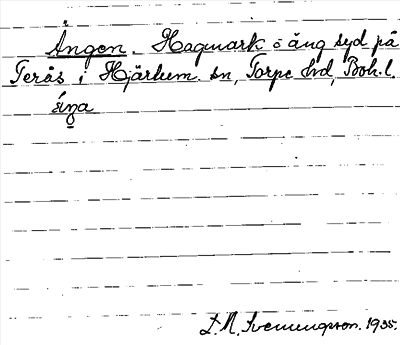 Ängen. Hagmark o äng syd på
Terås i Hjärtum. sn, Torpe hd, Boh.l.
D. N. Svenungsson. 1935.